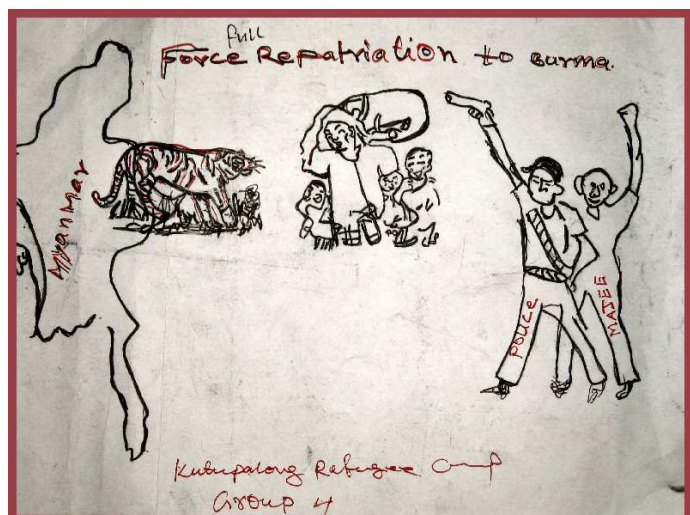 full
Force Repatriation to Burma.
Myanmar
POLICE
MAJEE
Kutupalong Rafugee Camp
Group 4